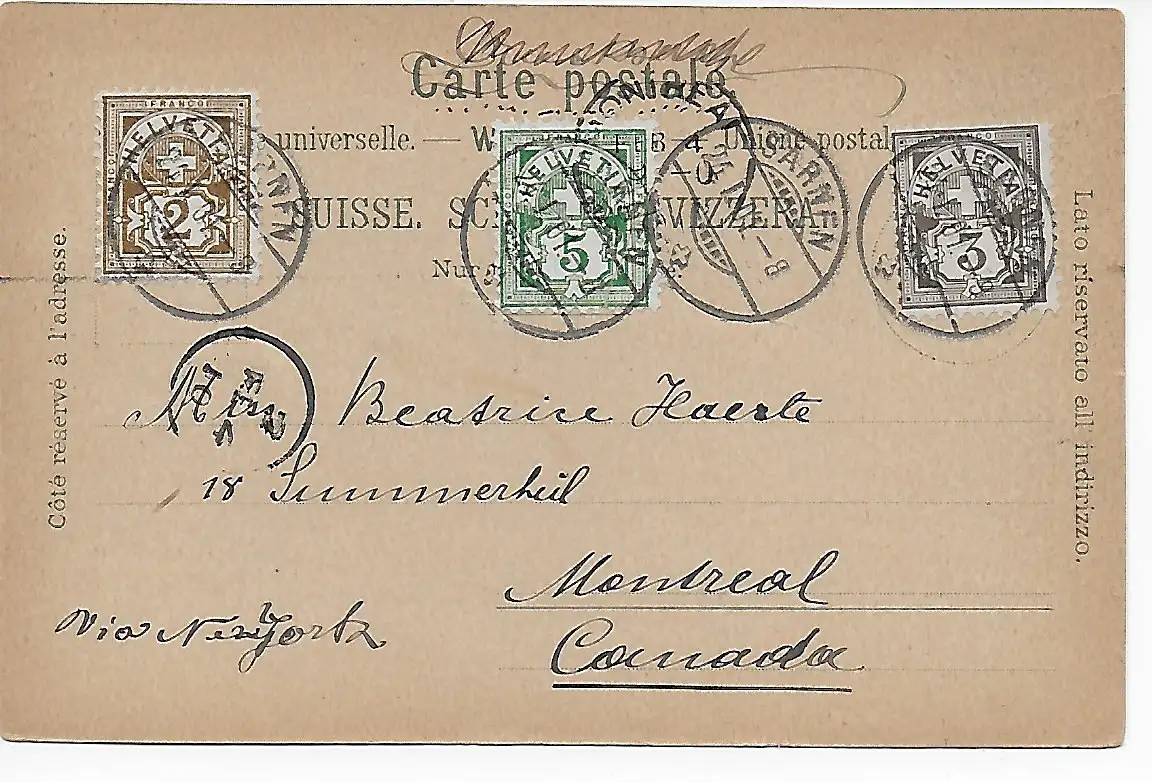 Carte postale.
universelle. — W — Unione postal
SUISSE. SC VIZZERA
Nur
Côté réservé à l'adresse.
Lato riservato all' indirizzo.
FRANCO
HELVETIA
2
FRANCO
HELVETIA
5
FRANCO
HELVETIA
3
MONTREAL
SARNEN
Beatrice Haerte
18 Summerhill
Montreal
Canada
via New York